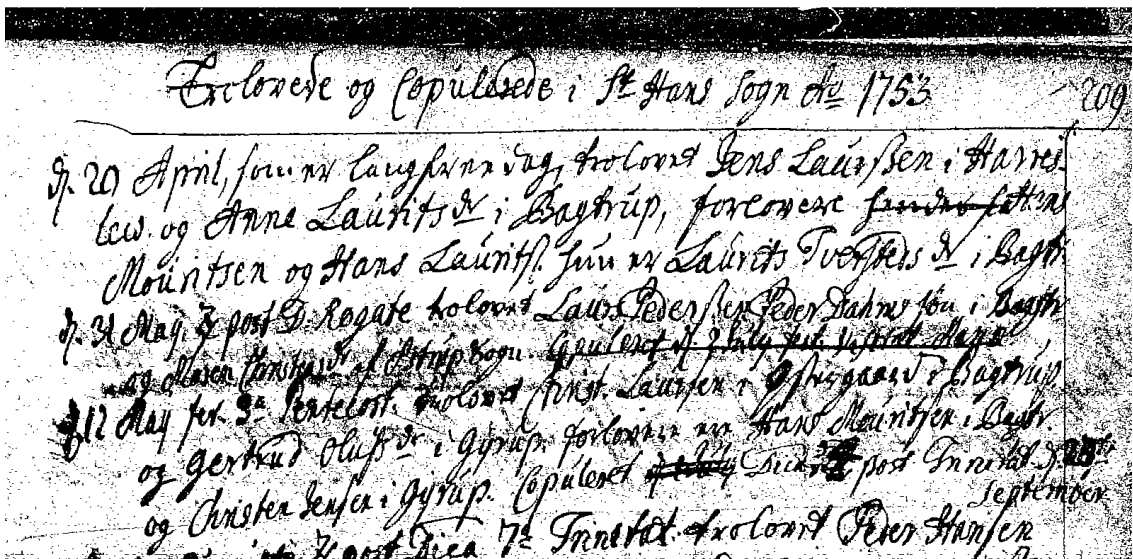 Trolovede og Copulerede i St Hans Sogn Ao 1753 209
d. 20 April, som er langfredag, trolovet Jens Laurssen i Harres-
lew. og Anne Laurits dr i Bagtrup, forlovere Hans
Mouritsen og Hans Lauritss. hun er Laurits dr i Bagtr.
d. 31 May, post D. Rogate trolovet Laurs Pederssen Peder søn i Bagtr
og Maren Christens dr af Astrup Sogn. Copuleret d.
d. 12 May fer. 3a Pentecost. trolovet Christ. Laursen i Østergaard i Bagtrup.
og Gertrud Olufs dr i Gyrup. forlovere ere Hans Mouritsen i Bagtr.
og Christen Jensen i Gyrup. Copuleret post Trinitat d. 23
September
post 7a Trinitat. trolovet Peder Hansen